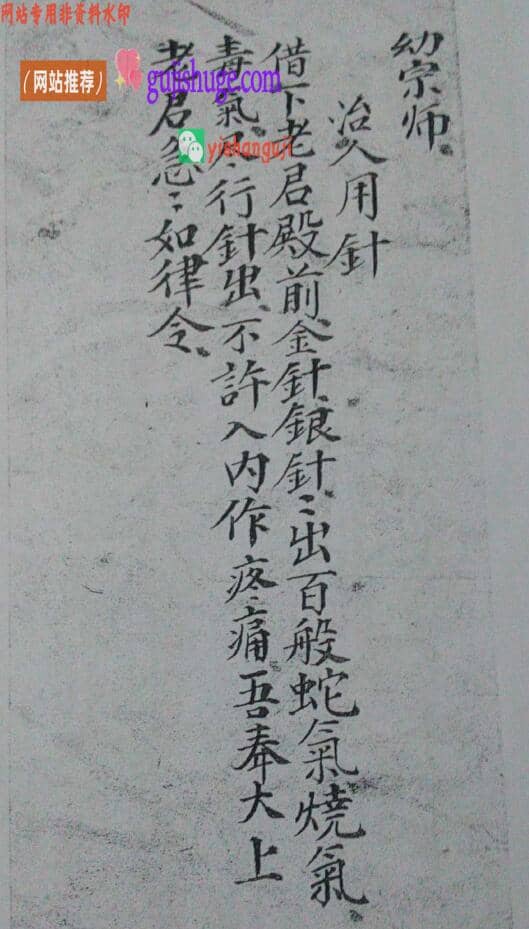 网站专用非资料水印
（网站推荐）
gujishuge.com
yishanguji
幼宗师
治人用針
借下老君殿前金針銀針〻出百般蛇氣燒氣
毒氣〻行針出不許入內作疼痛吾奉大上
老君急〻如律令